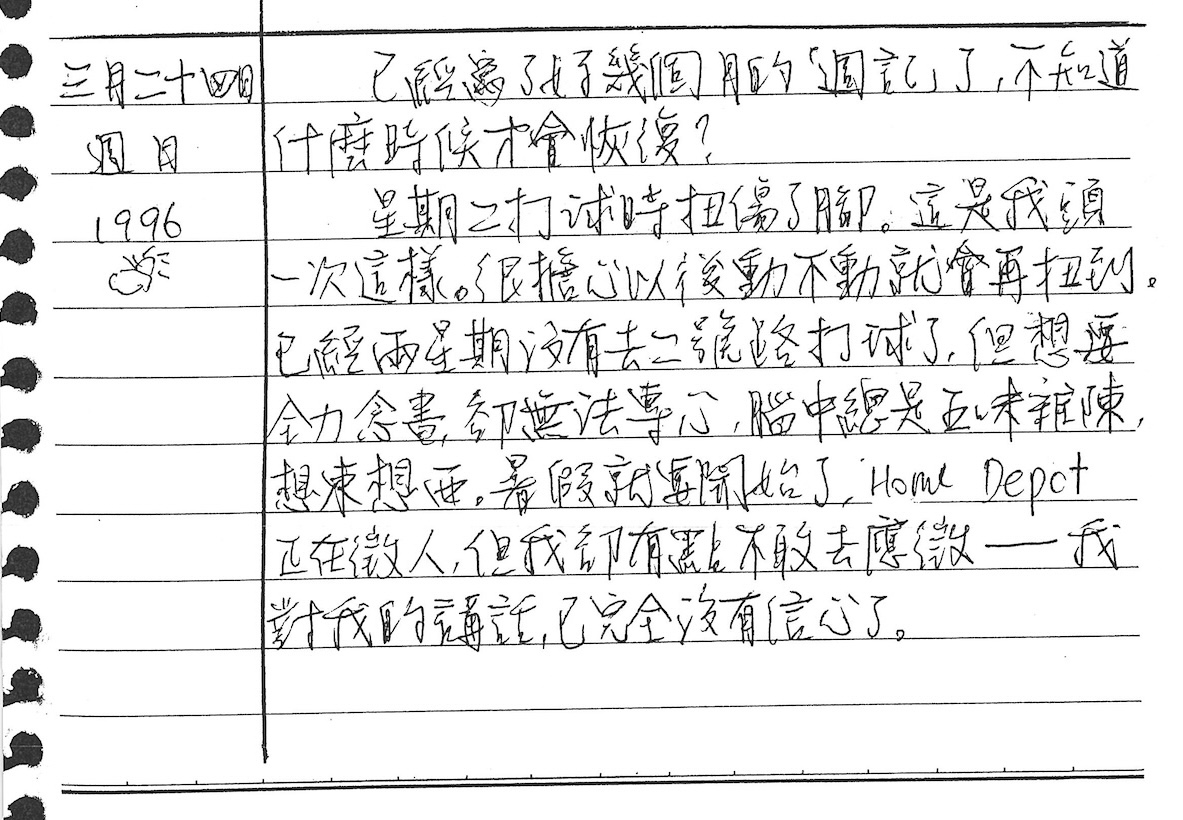 三月二十四日
週日
1996
已經寫了好幾個月的「週記」了,不知道
什麼時候才會恢復?
星期二打球時扭傷了腳。這是我頭
一次這樣。很擔心以後動不動就會再扭到。
已經兩星期沒有去二號路打球了,但想要
全力念書,卻無法專心,腦中總是五味雜陳,
想東想西。暑假就要開始了,Home Depot
正在徵人,但我卻有點不敢去應徵——我
對我的講話,已完全沒有信心了。